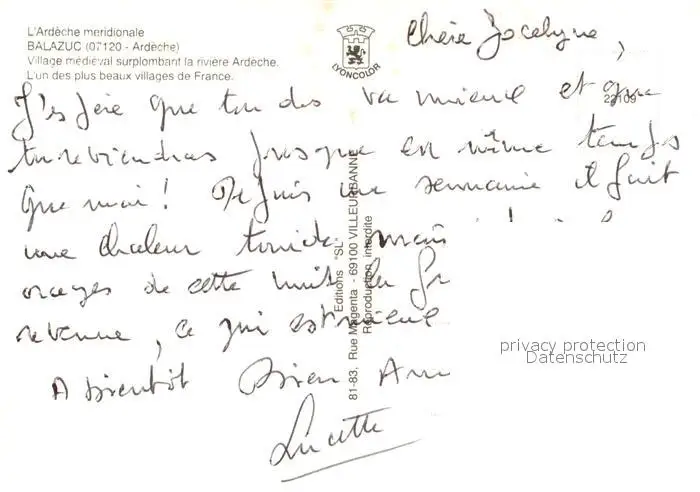 L'Ardèche meridionale
BALAZUC (07120 - Ardèche)
Village médiéval surplombant la rivière Ardèche.
L'un des plus beaux villages de France.
LYONCOLOR
22109
Chère Jocelyne,
J'espère que ton dos va mieux et que
tu reviendras presque en même temps
que moi! Depuis une semaine il fait
une chaleur torride mais
orages de cette nuit la fr
revenue, ce qui est mieux
A bientôt Bien Am
Lucette
Editions "SL"
81-83, Rue Magenta - 69100 VILLEURBANNE
Reproduction interdite
privacy protection
Datenschutz